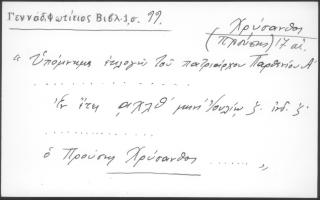 Γεννάδ. Φωτίειος Βιβλ. 1, σ. 99.
Χρύσανθος
(Προύσης) 17 αἰ.
"Ὑπόμνημα ἐκλογῆς τοῦ πατριάρχου Παρθενίου Α΄
. . . . . . . . . . . . . . . .
Ἐν ἔτει ͵αχλθ΄ μηνὶ Ἰουλίῳ ζ. ἰνδ. ζ.
. . . . . . . . . . . . . . . .
ὁ Προύσης Χρύσανθος . . . . . . . "